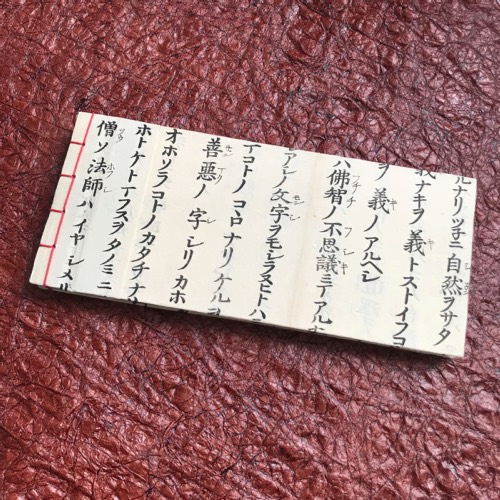 ルナリツ子ニ自然ヲサタ
義ナキヲ義トストイフコ
ヲ義ノアルヘシ
ハ佛智ノ不思議ニテアルナ
アシノ文字ヲモシラヌヒトハ
コトノコヽロナリケルヲ
善悪ノ字シリカホ
オホソラコトノカタチナ
ホトケト
僧ソ法師ハイヤシメ